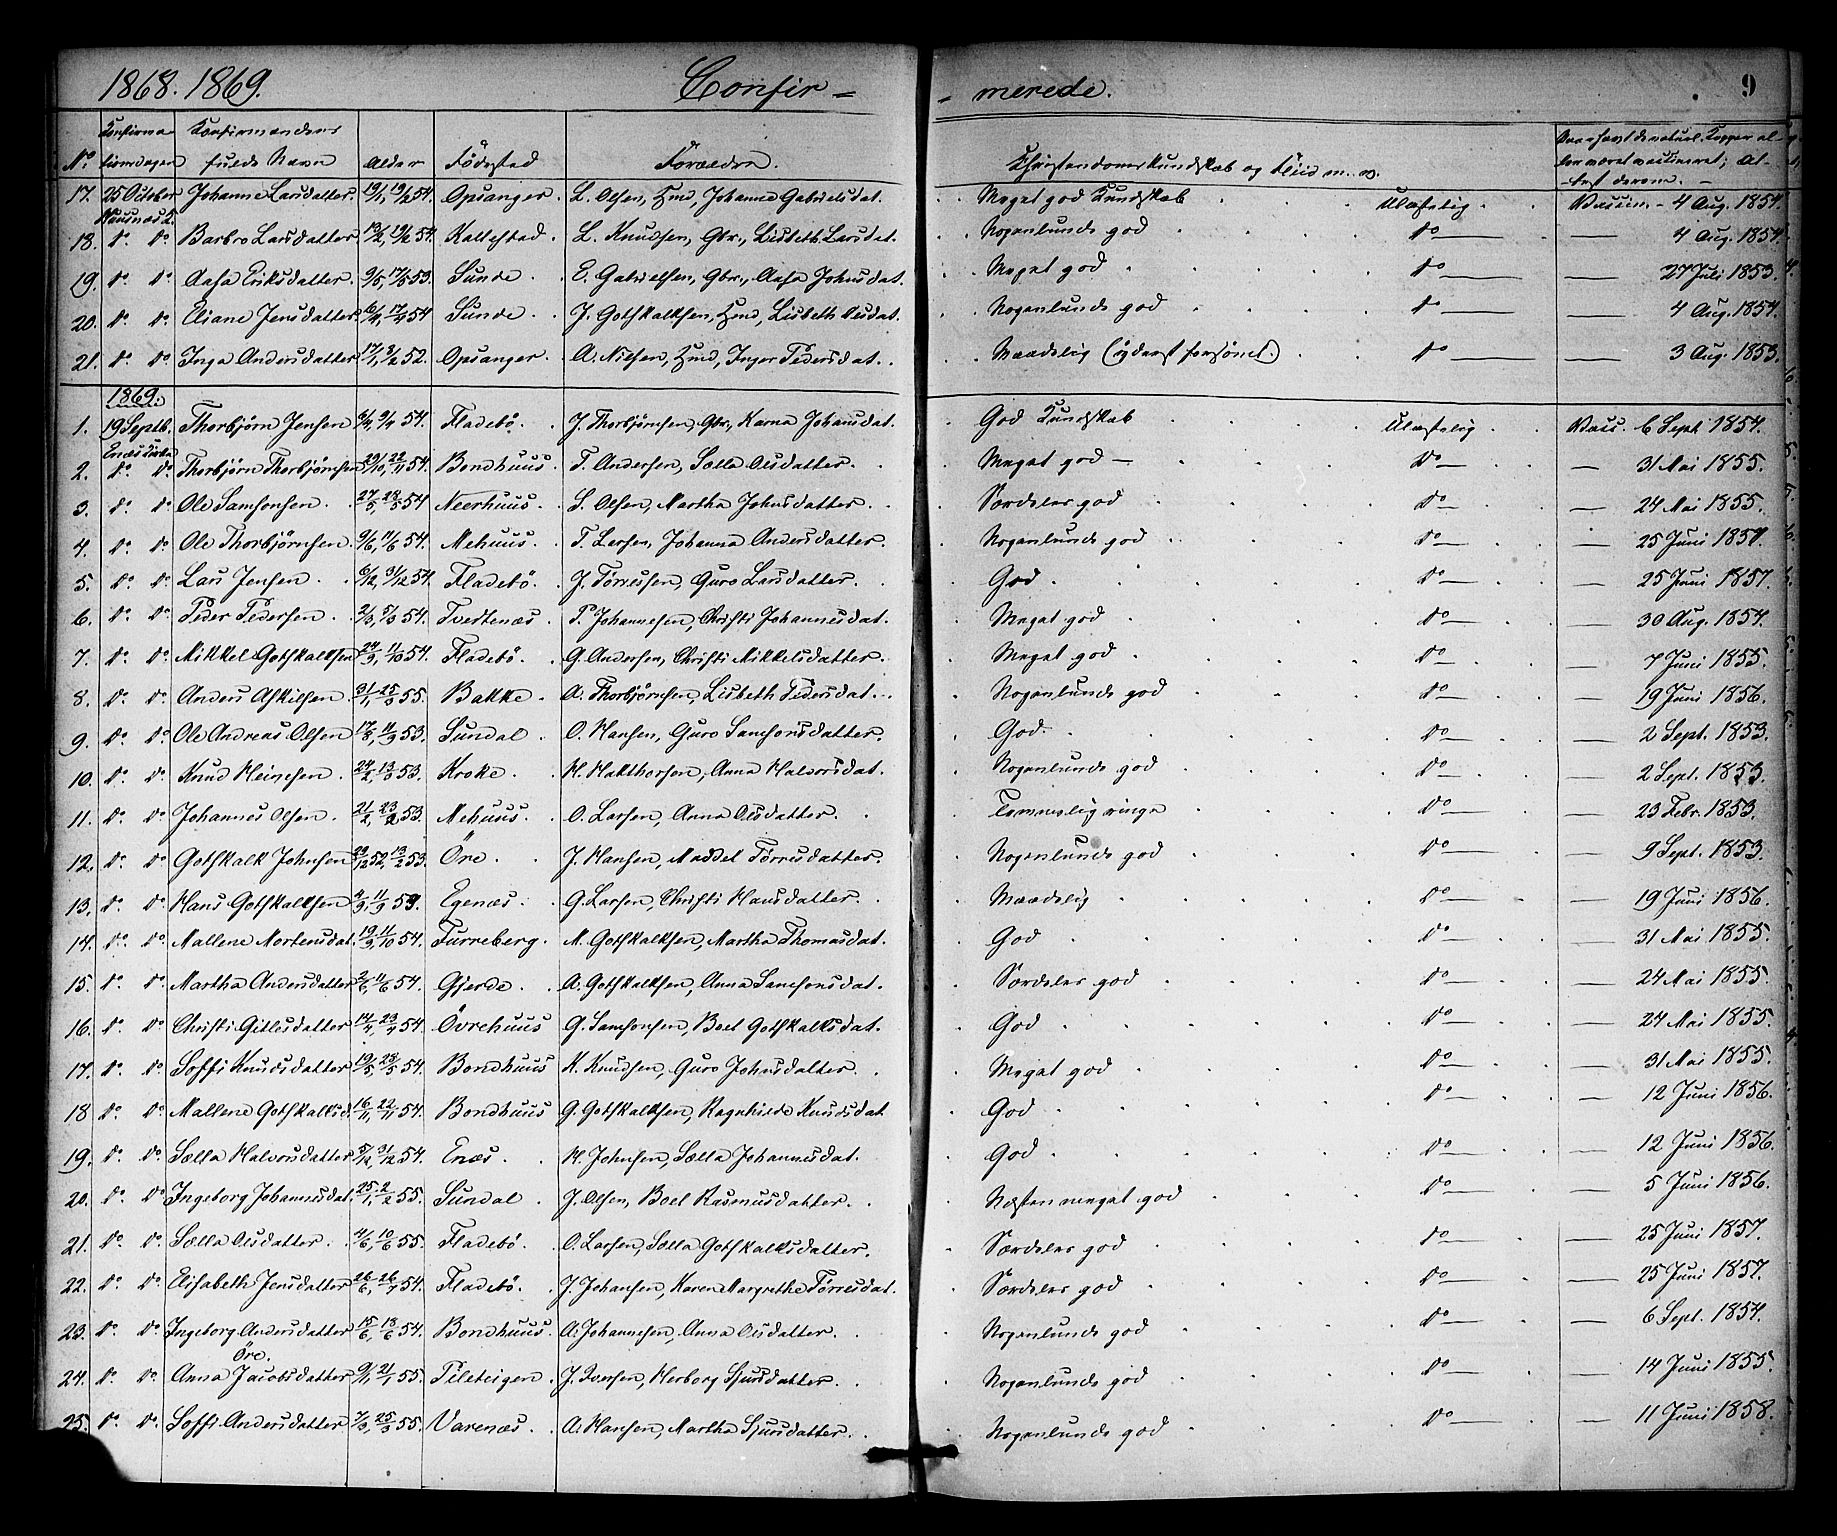 1868. 1869. Confir- -merede. 9
No. Konfirmationsdagen Konfirmandens fulde Navn Alder Fødested Forældre. Christendomskundskab og Fliid m. v.
17. 25 October Johanne Larsdatter. 19/1, 19/2 54. Opsanger. L. Olsen, Hmd, Johanna Gabrielsdat. Meget god Kundskab Ulastelig Vaccin. 4 Aug. 1854.
18. do do Barbro Larsdatter 54. Kaltestad. L. Knudsen, Gbr., Lisbeth Larsdat. Nogenlunde god do 4 Aug. 1854.
19. do do Aasa Eriksdatter. 53. Sunde. E. Gabrielsen, Gbr., Aasa Johnsdat. Meget god do 27 Juli 1853.
20. do do Eliane Jensdatter 54 Sunde. J. Gotskalksen, Hmd, Lisbeth Olsdat. Nogenlunde god do 4 Aug. 1854.
21. do do Inga Andersdatter 17/1, 2/2 52. Opsanger. A. Nielsen, Hmd, Inger Pedersdat. Maadelig (yderst forsømt.) do 3 Aug. 1853.
1869.
1. 19 Septb. Thorbjørn Jensen 54. Fladebö. J. Thorbjørnsen, Gbr., Karna Johansdat. God Kundskab Ulastelig Vacc. 6 Sept 1854.
Enæs Kirke
2. do do Thorbjørn Thorbjörnsen 29/10, 22/11 54. Bondhuus. T. Andersen, Sælla Olsdatter. Meget god do 31 Mai 1855.
3. do do Ole Samsonsen. 27/5, 28/5 54 Neerhuus. S. Olsen, Martha Johnsdatter. Særdeles god do 24 Mai 1855.
4. do do Ole Thorbjørnsen. 9/6, 11/6 54. Mehuus. T. Larsen, Johanna Andersdatter. Nogenlunde god do 25 Juni 1857.
5. do do Lars Jensen. 6/12, 31/12 54. Fladebö. J. Tørresen, Guro Larsdatter. God do 25 Juni 1857.
6. do do Peder Pedersen. 2/3, 5/3 54. Tvertenæs. P. Johannesen, Christi Johannesdat. Meget god do 30 Aug. 1854.
7. do do Mikkel Gotskalksen 24/9, 11/10 54. Fladebö. G. Andersen, Christi Mikkelsdatter. Meget god do 7 Juni 1855.
8. do do Anders Askilsen. 31/1, 25/3 55. Bakke. A. Thorbjørnsen, Lisbeth Pedersdat. Nogenlunde god do 19 Juni 1856.
9. do do Ole Andreas Olsen 17/8, 11/9 53. Sundal. O. Hansen, Guro Samsonsdatter. God. do 2 Sept. 1853.
10. do do Knud Heinesen. 24/2, 13/3 53. Kroke. H. Hakthorsen, Anna Halvorsdat. Nogenlunde god do 2 Sept. 1853.
11. do do Johannes Olsen. 21/2, 23/2 53. Mehuus. O. Larsen, Anna Olsdatter. Temmelig ringe do 23 Febr. 1853.
12. do do Gotskalk Johnsen 23/12 52, 13/2 53. Öre. J. Hansen, Maddel Tørresdatter. Nogenlunde god do 9 Sept. 1853.
13. do do Hans Gotskalksen 4/9, 11/9 53. Egenæs. G. Larsen, Christi Hansdatter. Maadelig do 19 Juni 1856.
14. do do Mallene Mortensdat. 19/9, 11/10 54. Furreberg. M. Gotskalksen, Martha Thomasdat. God do 31 Mai 1855.
15. do do Martha Andersdatter 2/6, 11/6 54. Gjerde. A. Gotskalksen, Anna Samsonsdat. Særdeles god do 24 Mai 1855
16. do do Christi Gitlesdatter 14/4, 23/4 54. Övrehuus G. Samsonsen, Boel Gotskalksdat. God do 24 Mai 1855.
17. do do Soffi Knudsdatter 19/5, 28/5 54. Bondhuus K. Knudsen, Guro Johnsdatter. Meget god do 31 Mai 1855.
18 do do Mallene Gotskalksd. 16/11, 22/11 54. Bondhuus G. Gotskalksen, Ragnhilde Knudsdat God do 12 Juni 1856.
19. do do Sælla Halvorsdatter 5/12, 31/12 54. Enæs. H. Johnsen, Sælla Johannesdat. God do 12 Juni 1856.
20. do do Ingeborg Johannesdat. 25/1, 2/2 55. Sundal J. Olsen, Boel Rasmusdatter. Næsten meget god do 5 Juni 1856.
21. do do Sælla Olsdatter. 4/6, 10/6 55. Fladebö. O. Larsen, Sælla Gotskalksdatter. Særdeles god do 25 Juni 1857.
22. do do Elisabeth Jensdatter 26/6, 54. Fladebö. J. Johansen, Karen Margrethe Tørresdat. Særdeles god do 25 Juni 1857.
23. do do Ingeborg Andersdatter 15/6, 18/6 54. Bondhuus. A. Johannesen, Anna Olsdatter. Nogenlunde god do 6 Sept. 1854.
Öre.
24. do do Anna Jacobsdatter 9/1, 21/1 55. Pileteigen J. Iversen, Herborg Sjursdatter. Nogenlunde god do 14 Juni 1855.
25. do do Soffi Andersdatter 7/3, 25/3 55. Varenæs A. Hansen, Martha Sjursdatter. Nogenlunde god do 11 Juni 1858.